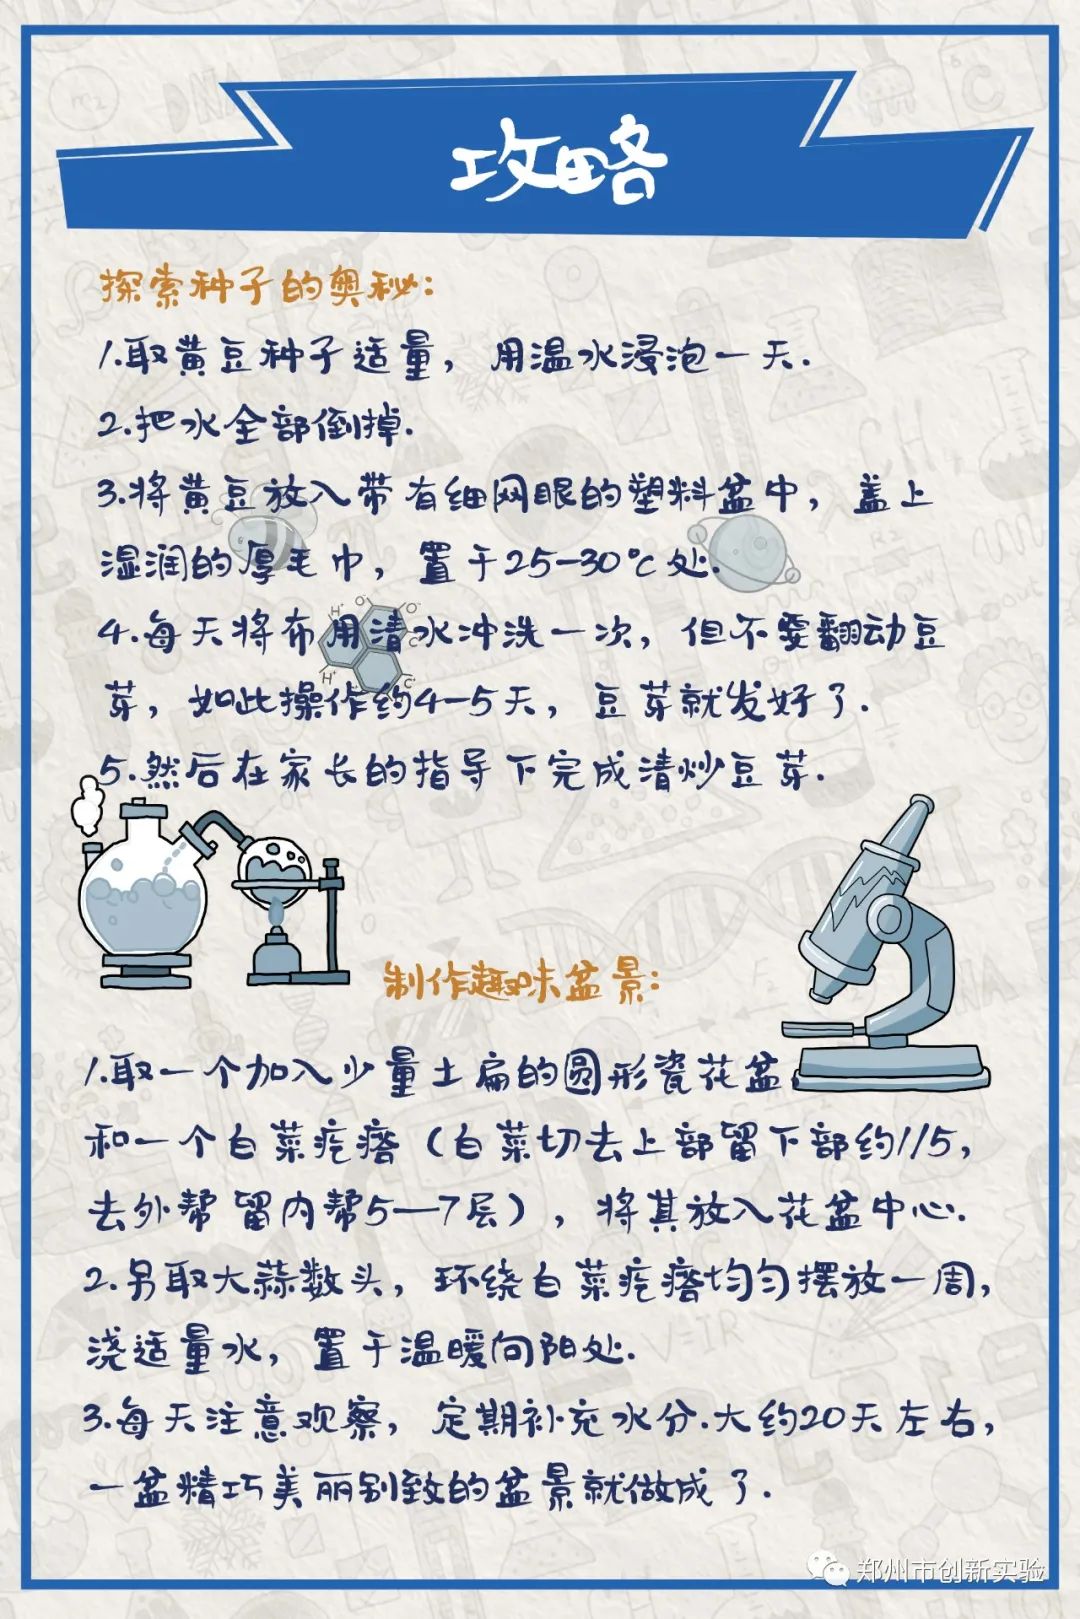 攻略
探索种子的奥秘:
1.取黄豆种子适量，用温水浸泡一天.
2.把水全部倒掉.
3.将黄豆放入带有细网眼的塑料盆中，盖上
湿润的厚毛巾，置于25-30℃处.
4.每天将布用清水冲洗一次，但不要翻动豆
芽，如此操作约4-5天，豆芽就发好了.
5.然后在家长的指导下完成清炒豆芽.
制作趣味盆景:
1.取一个加入少量土扁的圆形瓷花盆，
和一个白菜疙瘩（白菜切去上部留下部约1/5，
去外帮留内帮5—7层），将其放入花盆中心.
2.另取大蒜数头，环绕白菜疙瘩均匀摆放一周，
浇适量水，置于温暖向阳处.
3.每天注意观察，定期补充水分.大约20天左右，
一盆精巧美丽别致的盆景就做成了.
郑州市创新实验